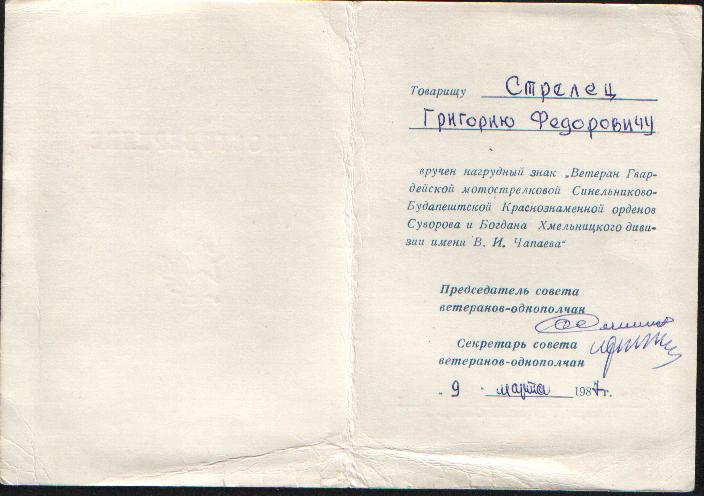 Товарищу Стрелец
Григорию Федоровичу
вручен нагрудный знак „Ветеран Гвар-
дейской мотострелковой Синельниково-
Будапештской Краснознаменной орденов
Суворова и Богдана Хмельницкого диви-
зии имени В. И. Чапаева“
Председатель совета
ветеранов-однополчан
Секретарь совета
ветеранов-однополчан
9 марта 1987г.